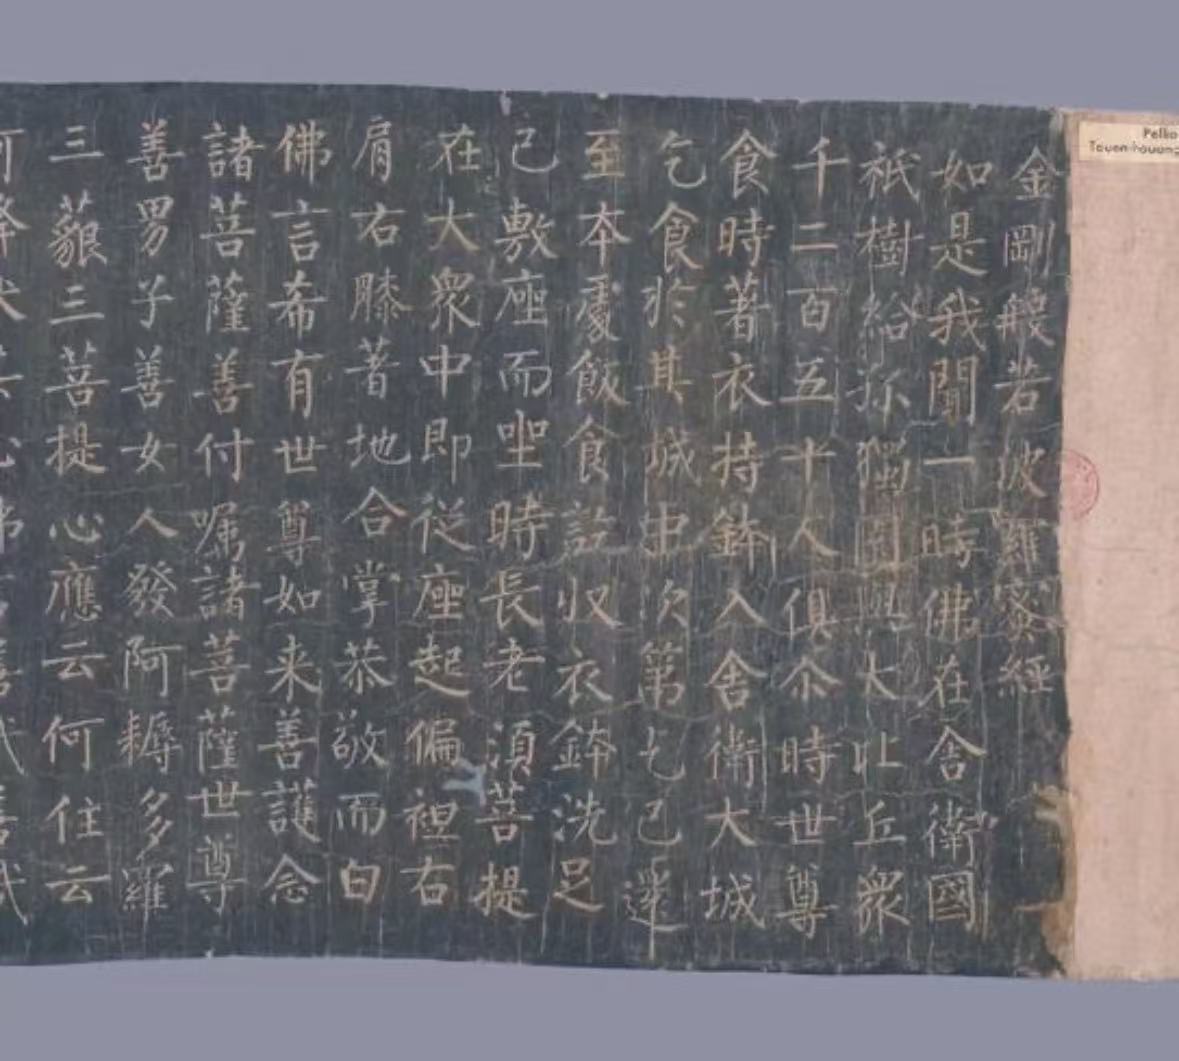 金剛般若波羅蜜經
如是我聞一時佛在舍衛國
祇樹給孤獨園與大比丘衆
千二百五十人俱尒時世尊
食時著衣持鉢入舍衛大城
乞食於其城中次第乞已還
至本處飯食訖収衣鉢洗足
已敷座而坐時長老須菩提
在大衆中即從座起偏袒右
肩右膝著地合掌恭敬而白
佛言希有世尊如来善護念
諸菩薩善付嘱諸菩薩世尊
善男子善女人發阿耨多羅
三藐三菩提心應云何住云
何降伏其心佛言善哉善哉
Pellio
Touen-houang